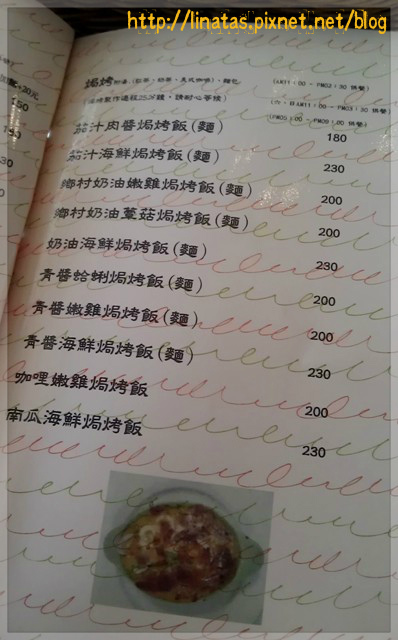 http://linatas.pixnet.net/blog
焗烤附湯、(紅茶、奶茶、美式咖啡)、麵包 (AM11:00 - PM02:30 供餐)
(焗烤製作過程25分鐘，請耐心等候) (六、日AM11:00 - PM03:30 供餐)
(PM05:00 - PM09:00 供餐)
茄汁肉醬焗烤飯(麵) 180
茄汁海鮮焗烤飯(麵) 230
鄉村奶油嫩雞焗烤飯(麵) 200
鄉村奶油蕈菇焗烤飯(麵) 200
奶油海鮮焗烤飯(麵) 230
青醬蛤蜊焗烤飯(麵) 200
青醬嫩雞焗烤飯(麵) 200
青醬海鮮焗烤飯(麵) 230
咖哩嫩雞焗烤飯 200
南瓜海鮮焗烤飯 230